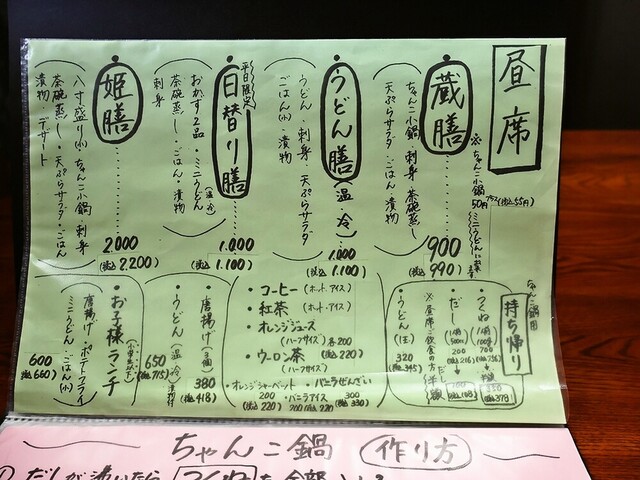 昼席
・蔵膳
ちゃんこ小鍋・刺身・茶碗蒸し
天ぷらサラダ・ごはん・漬物
900
(税込990)
※ちゃんこ小鍋
ミニうどんに変更
50円
(税込55円)
・うどん膳(温 冷)
うどん・刺身・天ぷらサラダ
ごはん(小)・漬物
1.000
(税込1.100)
・日替り膳
平日限定
おかず2品・ミニうどん(温 冷)
茶碗蒸し・ごはん・漬物
刺身
1.000
(税込1.100)
・姫膳
八寸盛り(小)・ちゃんこ小鍋・刺身
茶碗蒸し・天ぷらサラダ・ごはん
漬物・デザート
2000
(税込2,200)
持ち帰り
ちゃんこ鍋用
・つくね
・だし
※昼席ご飲食の方半額
・うどん(生)
320
(税込345)
・コーヒー(ホット・アイス)
・紅茶(ホット・アイス)
・オレンジジュース
(ハーフサイズ) 各200
・ウーロン茶(税込220)
(ハーフサイズ)
・オレンジシャーベット
200
(税込220)
・バニラアイス
200(税込220)
・バニラぜんざい
300
(税込330)
・唐揚げ(3個)
380
(税込418)
・うどん(温 冷)漬物付
650
(税込715)
・お子様ランチ
(小学生以下)
唐揚げ・ポテトフライ
ミニうどん・ごはん(小)
600
(税込660)
ちゃんこ鍋 作り方
① だしが沸いたら つくねを全部